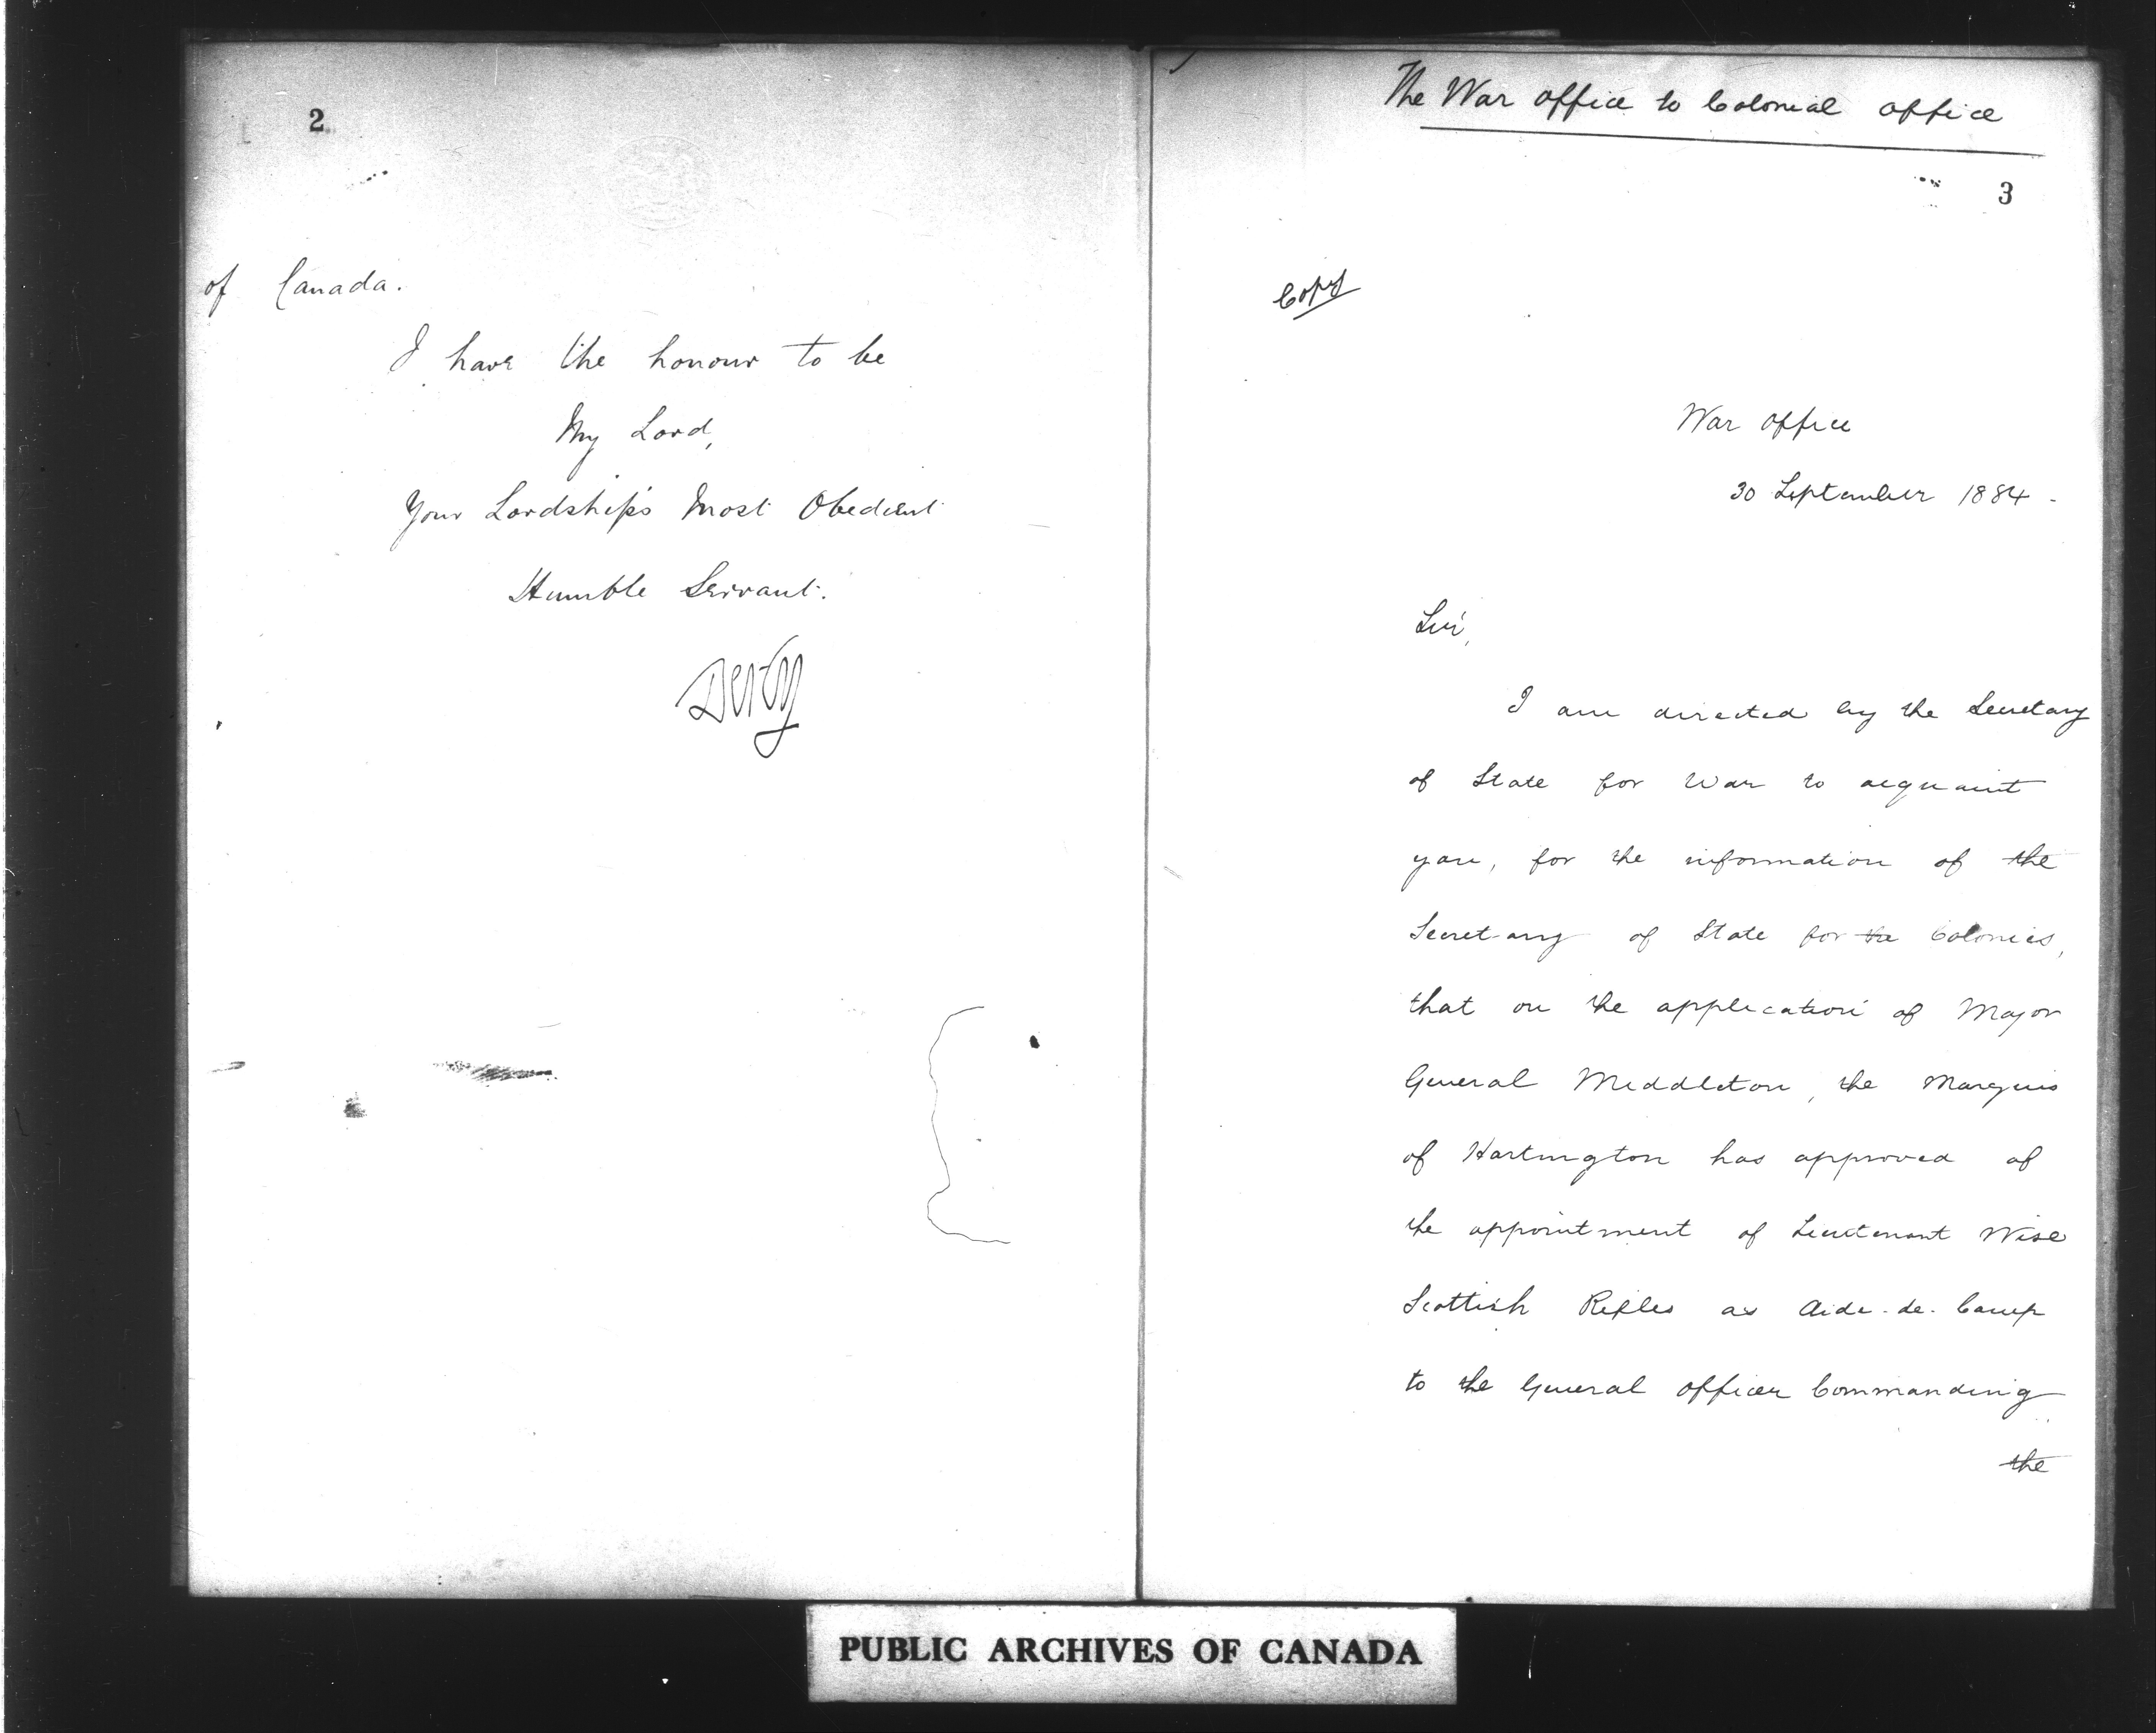 2
of Canada.
I have the honour to be
My Lord,
Your Lordship's Most Obedient
Humble Servant.
Derby
The War Office to Colonial Office
3
Copy
War Office
30 September 1884.
Sir,
I am directed by the Secretary
of State for War to acquaint
you, for the information of the
Secretary of State for the Colonies,
that on the application of Major
General Middleton, the Marquis
of Hartington has approved of
the appointment of Lieutenant Wise
Scottish Rifles as Aide-de-Camp
to the General Officer Commanding
the
PUBLIC ARCHIVES OF CANADA